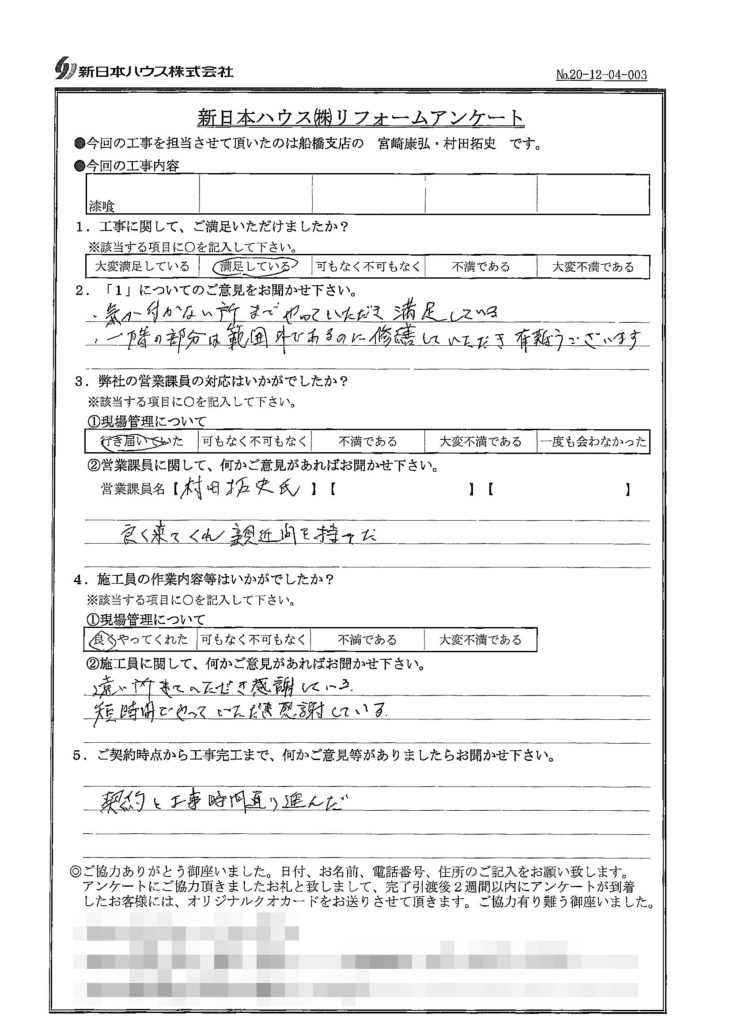 新日本ハウス株式会社
№20-12-04-003
新日本ハウス㈱リフォームアンケート
●今回の工事を担当させて頂いたのは船橋支店の 宮崎康弘・村田拓史 です。
●今回の工事内容
漆喰
1．工事に関して、ご満足いただけましたか？
※該当する項目に〇を記入して下さい。
大変満足している 満足している 可もなく不可もなく 不満である 大変不満である
2．「1」についてのご意見をお聞かせ下さい。
・気が付かない所までやっていただき満足している
・一階の部分は範囲外であるのに修繕していただき有難うございます
3．弊社の営業課員の対応はいかがでしたか？
※該当する項目に〇を記入して下さい。
①現場管理について
行き届いていた 可もなく不可もなく 不満である 大変不満である 一度も会わなかった
②営業課員に関して、何かご意見があればお聞かせ下さい。
営業課員名【村田拓史氏 】【 】【 】
良く来てくれ親近間を持った
4．施工員の作業内容等はいかがでしたか？
※該当する項目に〇を記入して下さい。
①現場管理について
良くやってくれた 可もなく不可もなく 不満である 大変不満である
②施工員に関して、何かご意見があればお聞かせ下さい。
遠い所来ていただき感謝している
短時間でやっていただき感謝している
5．ご契約時点から工事完工まで、何かご意見等がありましたらお聞かせ下さい。
契約と工事時間通り進んだ
◎ご協力ありがとう御座いました。日付、お名前、電話番号、住所のご記入をお願い致します。
アンケートにご協力頂きましたお礼と致しまして、完了引渡後2週間以内にアンケートが到着
したお客様には、オリジナルクオカードをお送りさせて頂きます。ご協力有り難う御座いました。